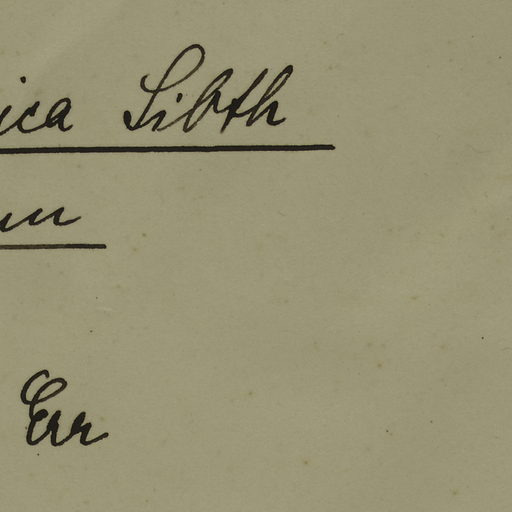 ica Sibth
Err